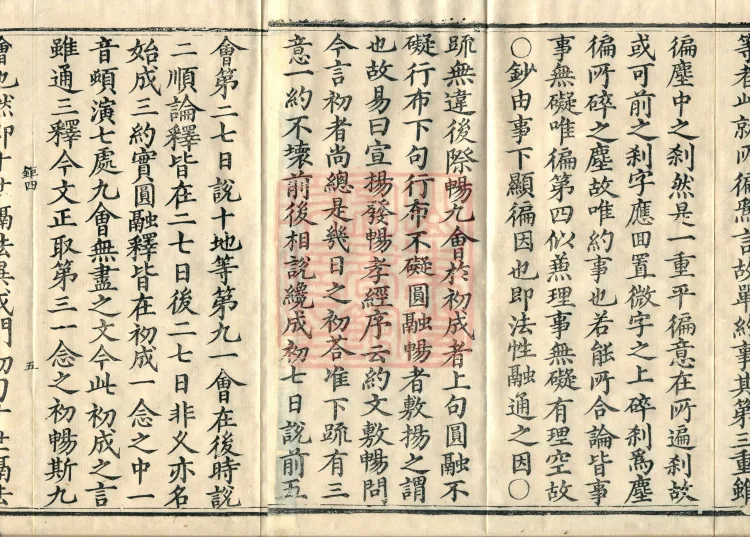 等者此就所徧爲言故單約事其第三重雖
徧塵中之刹然是一重平徧意在所遍刹故
或可前之刹字應回置微字之上碎刹爲塵
徧所碎之塵故唯約事也若能所合論皆事
事無礙唯徧第四似兼理事無礙有理空故
○鈔由事下顯徧因也即法性融通之因○
䟽無違後際暢九會於初成者上句圓融不
礙行布下句行布不礙圓融暢者敷揚之謂
也故易曰宣揚發暢孝經序云約文敷暢問
今言初者尚總是幾日之初荅准下䟽有三
意一約不壞前後相說纔成初七日說前五
會第二七日說十地等第九一會在後時說
二順論釋皆在二七日後二七日非义亦名
始成三約實圓融釋皆在初成一念之中一
音頓演七處九會無盡之文今此初成之言
雖通三釋今文正取第三一念之初暢斯九
會也然即十世隔法異成門初句十世隔法
鉅四
五